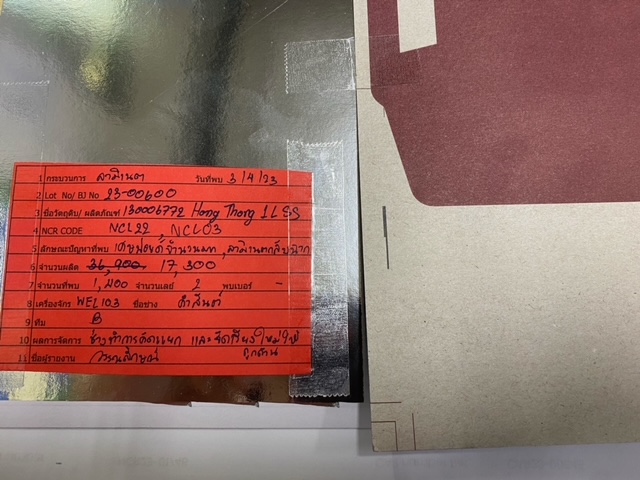 1 กระบวนการ ลามิเนต วันที่พบ 3/4/23
2 Lot. No/ BJ No 23-00600
3 ชื่อวัตถุดิบ/ ผลิตภัณฑ์ 130006772 Hong Thong 1L SS
4 NCR CODE NCL22, NCL03
5 ลักษณะปัญหาที่พบ
6 จำนวนผลิต 36,900 17,300
7 จำนวนที่พบ 1,200 จำนวนเดย์ 2 พบเบอร์ -
8 เครื่องจักร WEL103 ชื่อช่าง คำสินต์
9 ทีม B
10 ผลการจัดการ ช่างทำการคัดแยก และ
11 ชื่อผู้รายงาน